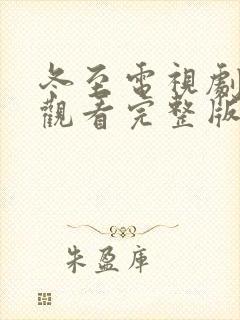 冬至電視劇
觀看完整版
朱盈庫